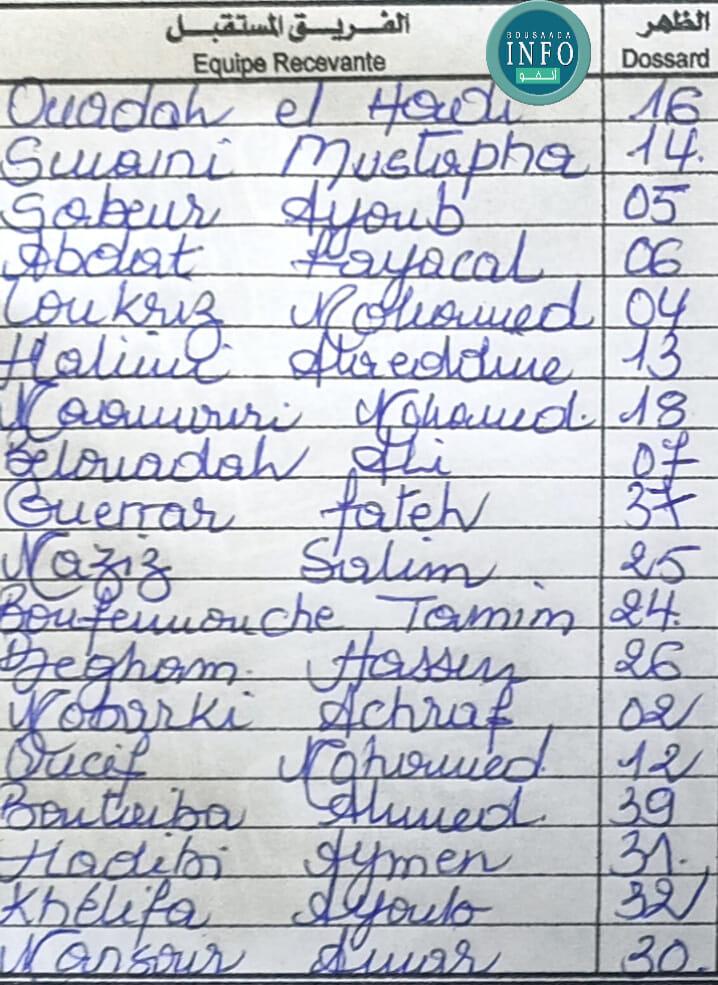 الفريق المستقبل الظهر
Equipe Recevante Dossard
BOUSAADA
INFO
أنفو
Ouadah el Hadi 16
Smaini Mustapha 14.
Gabeur Ayoub 05
Abdat Fayacal 06
Loukriz Mohamed 04
Halimi Alaeddine 13
Maamouri Mohamed. 18
Belouadah Ali 07
Guerrar fateh 37
Naziz Salim 25
Tamim 24.
Degham. Hassen 26
Mobarki Achraf 02
Oucif Mohamed 12
Bouteiba Ahmed. 39
Hadibi Aymen 31.
Khelifa Ayoub 32
Mansour Amar 30.